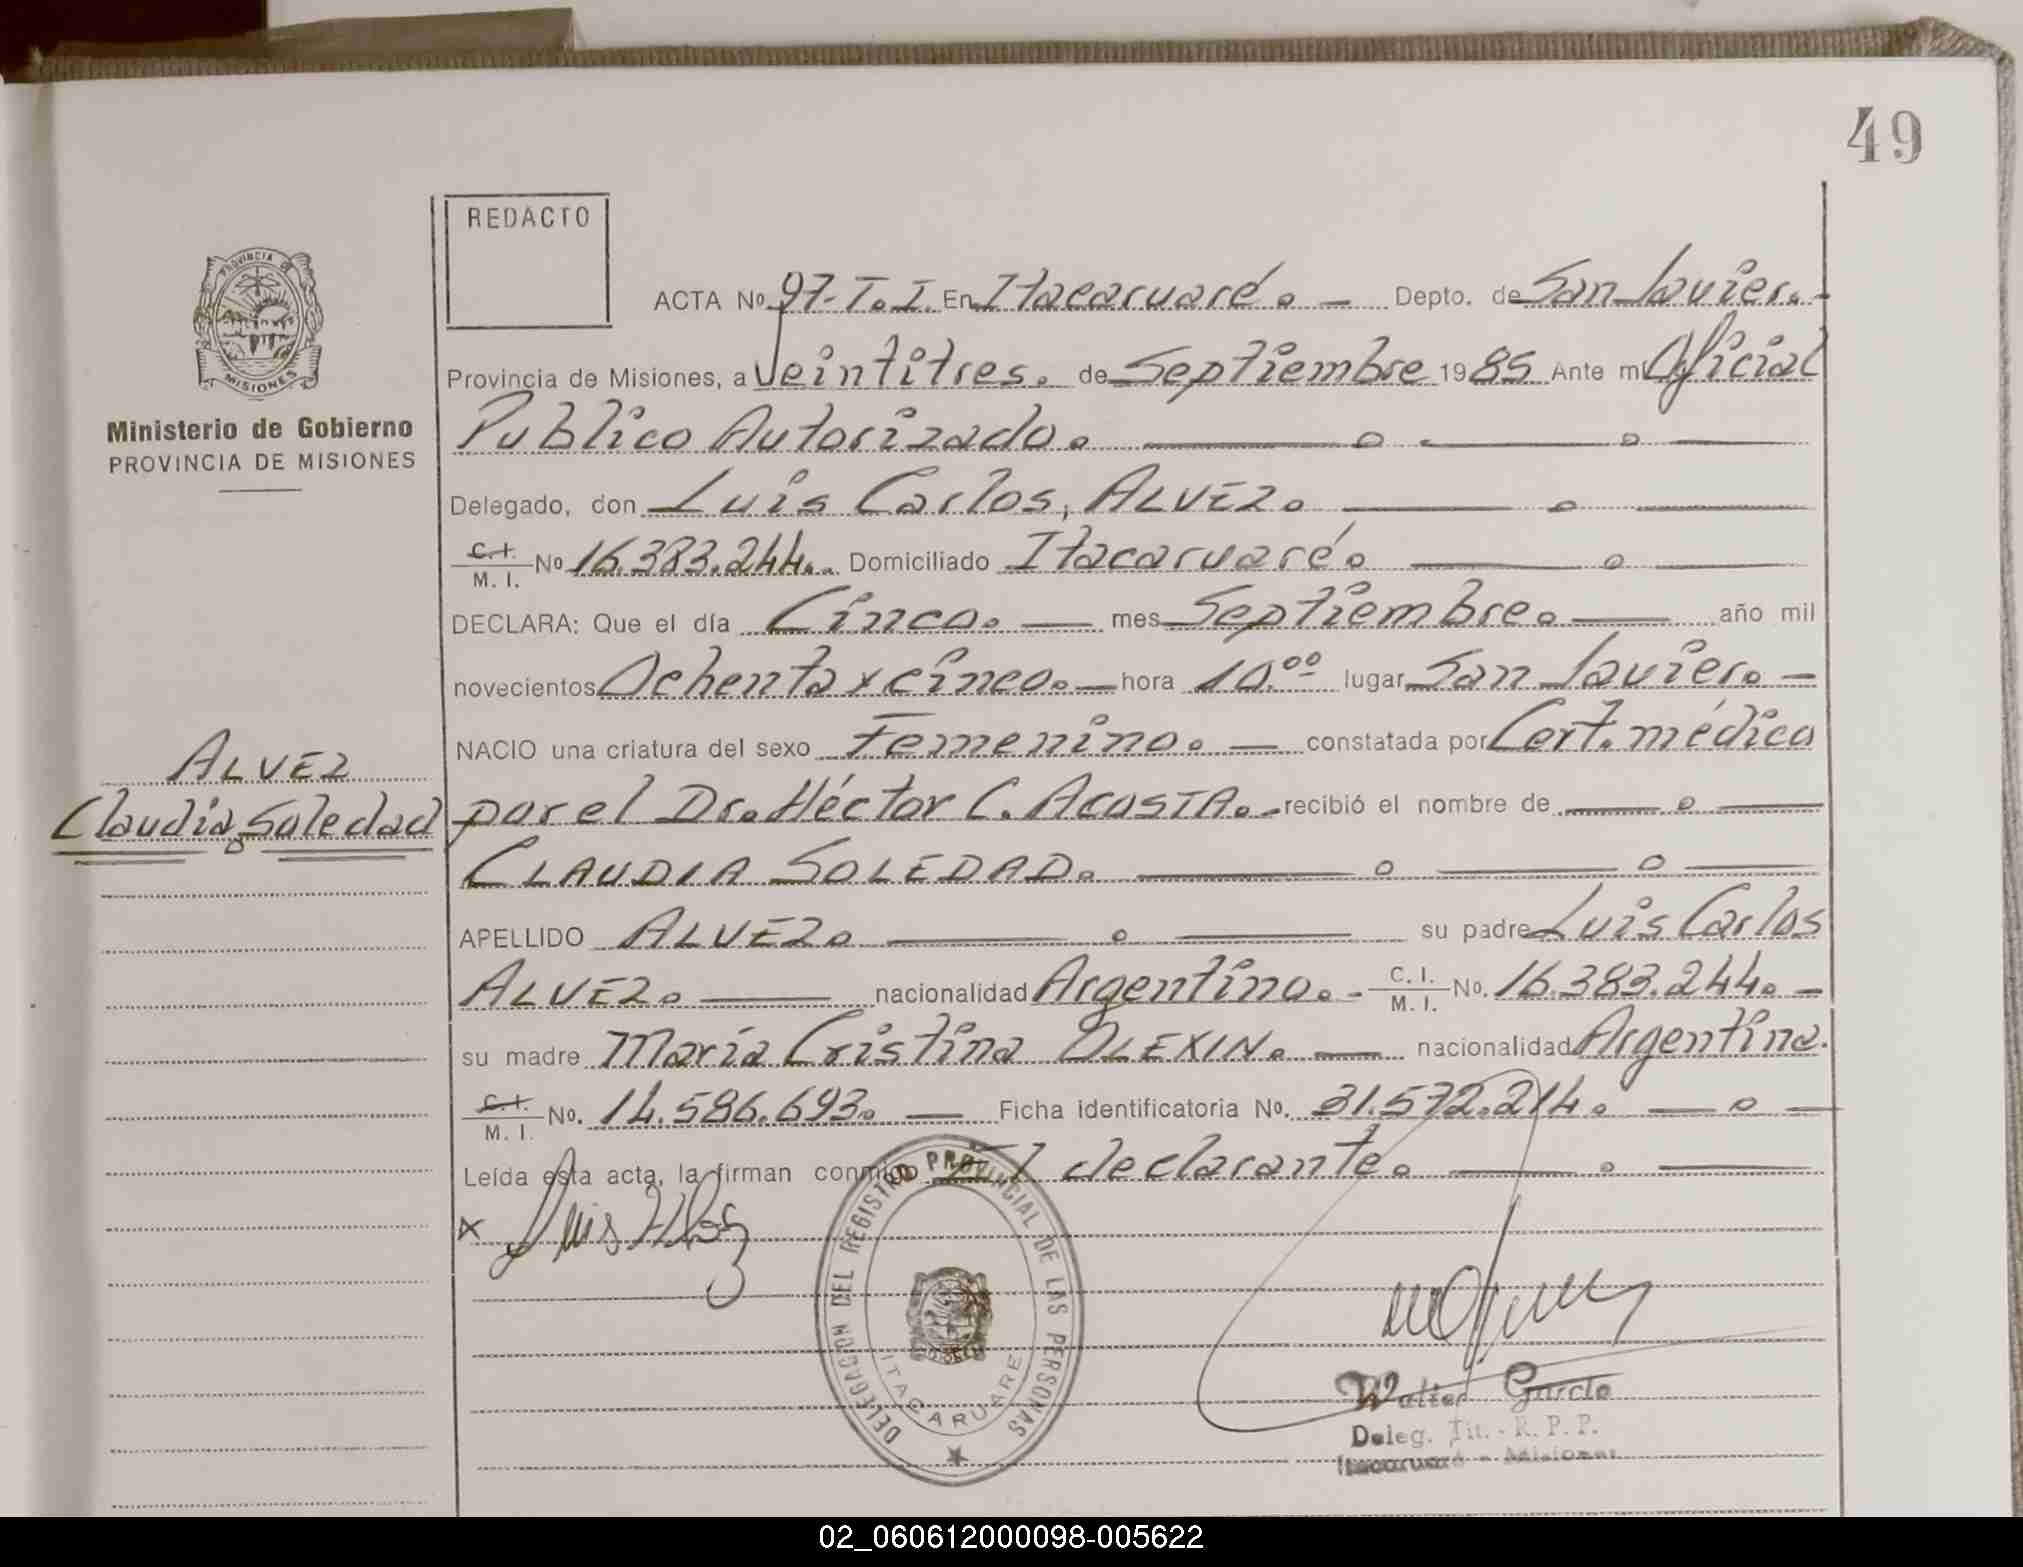 49
REDACTO
PROVINCIA DE
MISIONES
Ministerio de Gobierno
PROVINCIA DE MISIONES
ACTA No. 97-T.I. En Itacaruaré. - Depto. de San Javier. -
Provincia de Misiones, a Veintitres. de Septiembre 1985 Ante mi Oficial
Publico Autorizado.
Delegado, don Luis Carlos, ALVEZ.
C.I. M. I. No 16.383.244.. Domiciliado Itacaruaré.
DECLARA: Que el día Cinco. mes Septiembre. año mil
novecientos Ochenta y cinco. hora 10.00 lugar San Javier. -
NACIO una criatura del sexo Femenino. constatada por Cert. médico
por el Dr. Héctor C. ACOSTA. - recibió el nombre de
CLAUDIA SOLEDAD.
APELLIDO ALVEZ. su padre Luis Carlos
ALVEZ. nacionalidad Argentino. - C. I. M. I. No. 16.383.244. -
su madre María Cristina OLEXIN. nacionalidad Argentina.
C.I. M. I. No. 14.586.693. Ficha identificatoria No. 31.572.214.
Leída esta acta, la firman conmigo El declarante.
ALVEZ
Claudia Soledad
x Luis Alvez
DELEGACION DEL REGISTRO PROVINCIAL DE LAS PERSONAS
ITACARUARE
Walter García
Deleg. Tit. - R. P. P.
Itacaruaré - Misiones
02_060612000098-005622